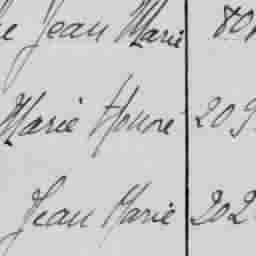 Jean Marie 80
Marie Honoré 209
Jean Marie 202